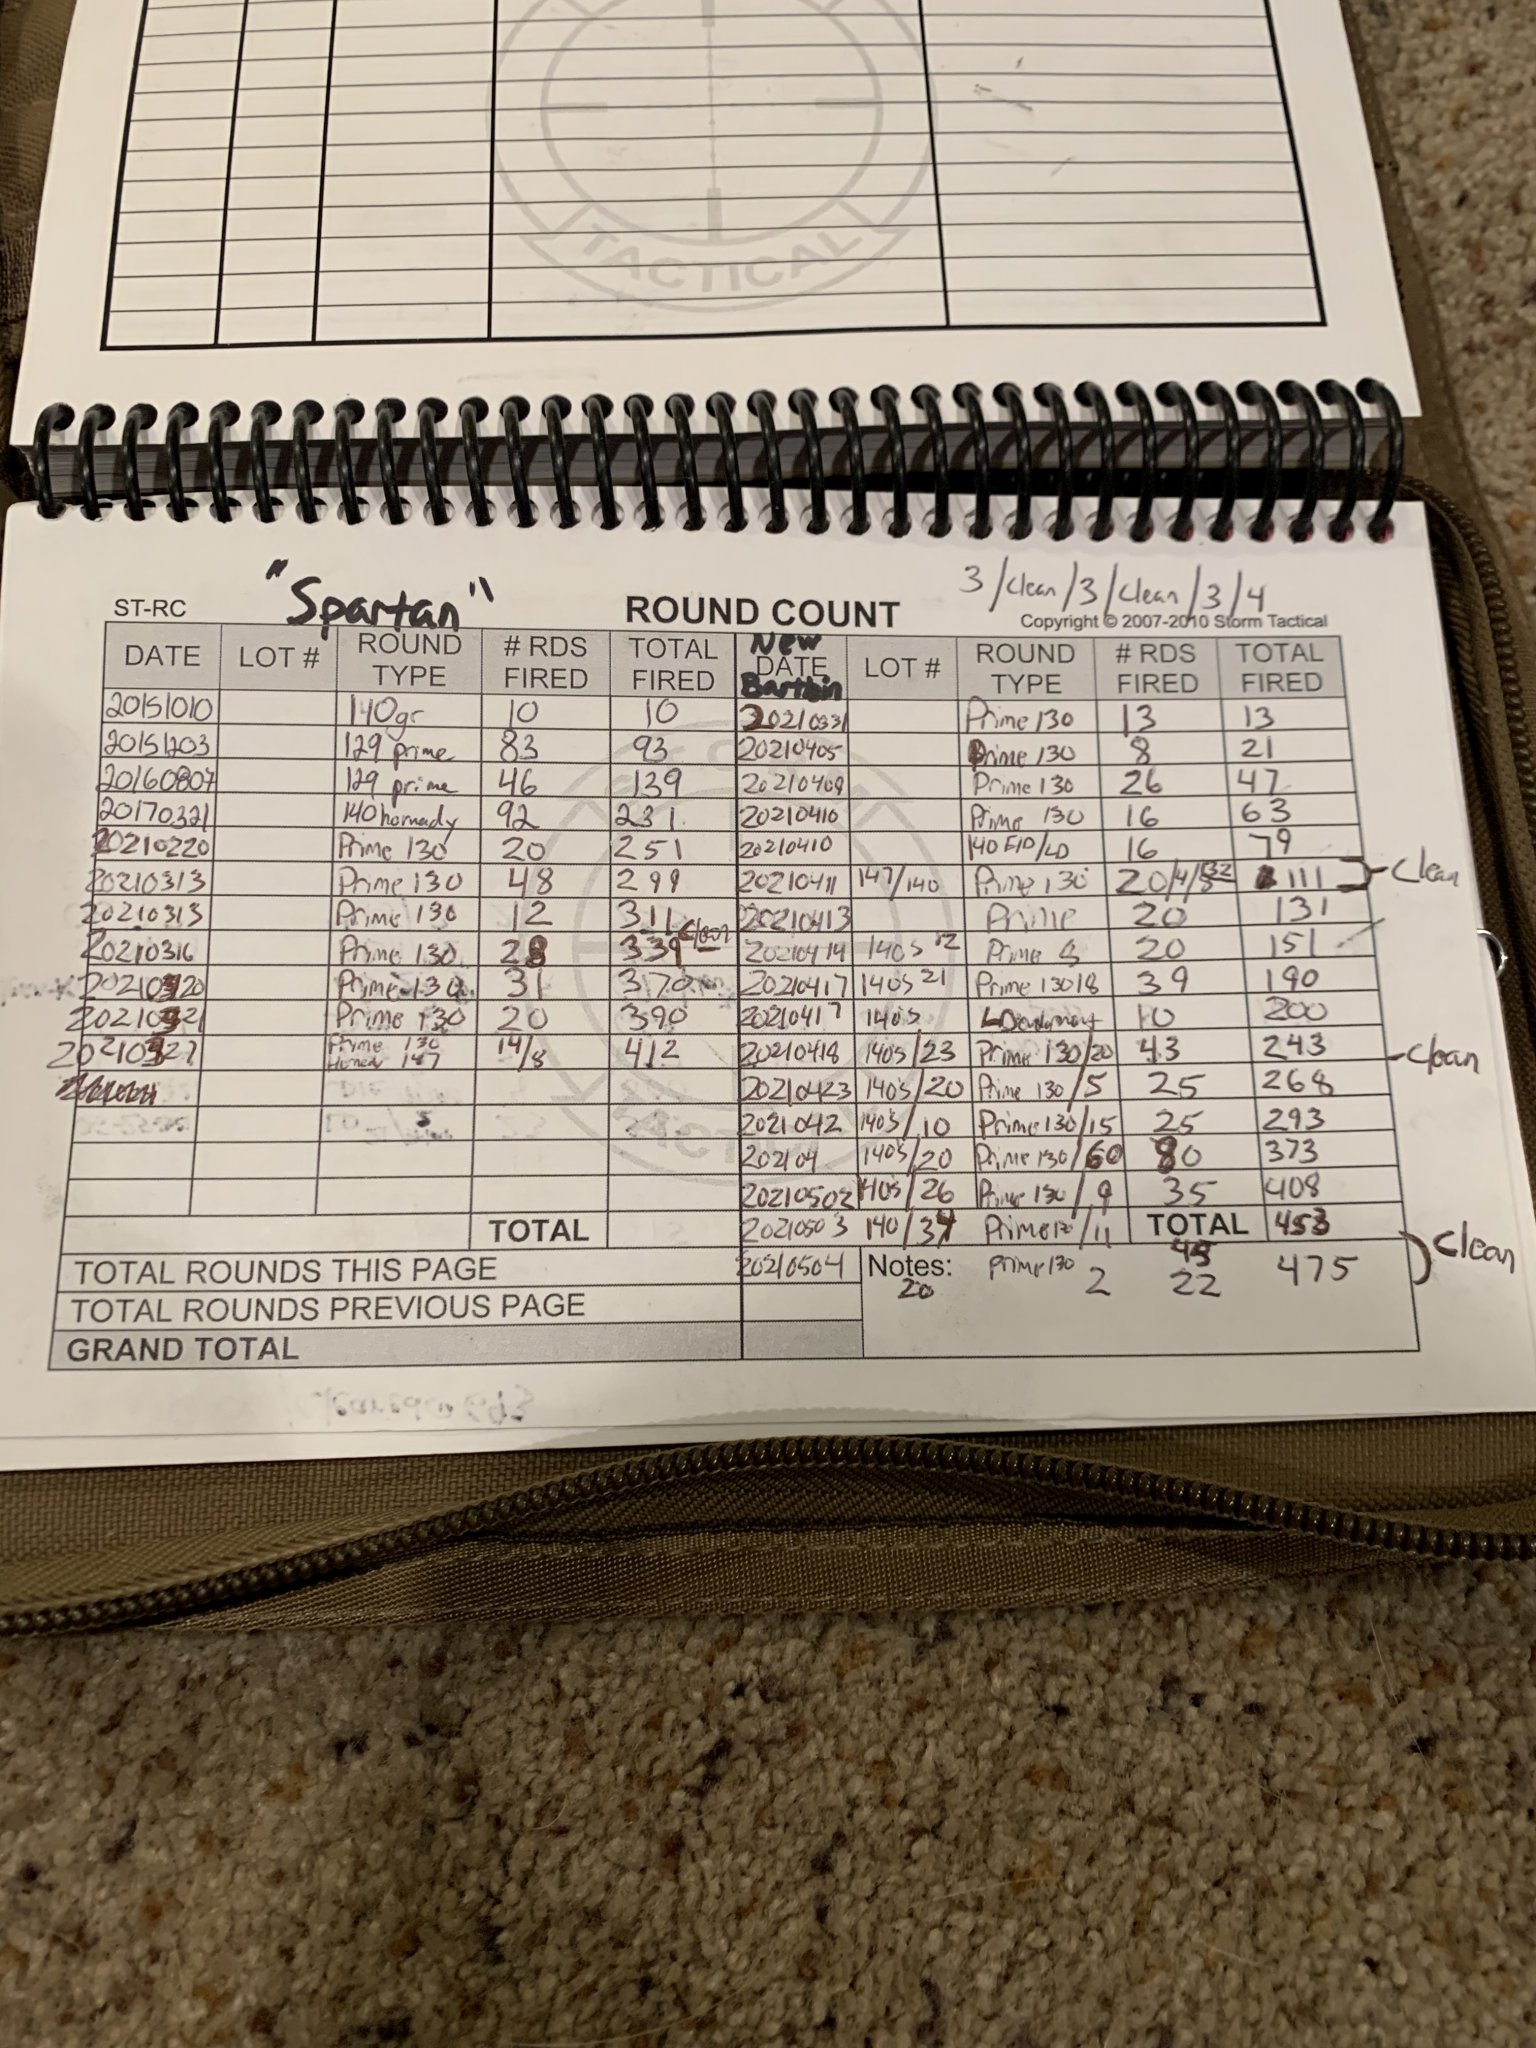 TACTICAL
3/clean/3/clean/3/4
ST-RC "Spartan" ROUND COUNT
Copyright © 2007-2010 Storm Tactical
New
DATE LOT # ROUND TYPE # RDS FIRED TOTAL FIRED DATE LOT # ROUND TYPE # RDS FIRED TOTAL FIRED
20151010 140gr 10 10 20210331 Prime 130 13 13
20151203 129 prime 83 93 20210405 Prime 130 8 21
20160807 129 prime 46 139 20210409 Prime 130 26 47
20170321 140 hornady 92 231 20210410 Prime 130 16 63
20210220 Prime 130 20 251 20210410 140 16 79
20210313 Prime 130 48 299 20210411 147/140 Prime 130 20/4/8 32 111 clean
20210313 Prime 130 12 311 20210413 Prime 20 131
20210316 Prime 130 28 339 clean 20210414 140s 12 Prime 8 20 151
20210320 Prime 130 31 370 20210417 140s 21 Prime 130 18 39 190
20210321 Prime 130 20 390 20210417 140s 10 200
20210327 Prime 130 Hornady 147 14/8 412 20210418 140s/23 Prime 130/20 43 243 clean
20210423 140s/20 Prime 130/5 25 268
2021042 140s/10 Prime 130/15 25 293
202104 140s/20 Prime 130/60 80 373
20210502 140s/26 Prime 130/9 35 408
TOTAL 20210503 140/34 Prime 130/11 TOTAL 453 clean
45
TOTAL ROUNDS THIS PAGE 20210504 Notes: 20 Prime 130 2 22 475
TOTAL ROUNDS PREVIOUS PAGE
GRAND TOTAL